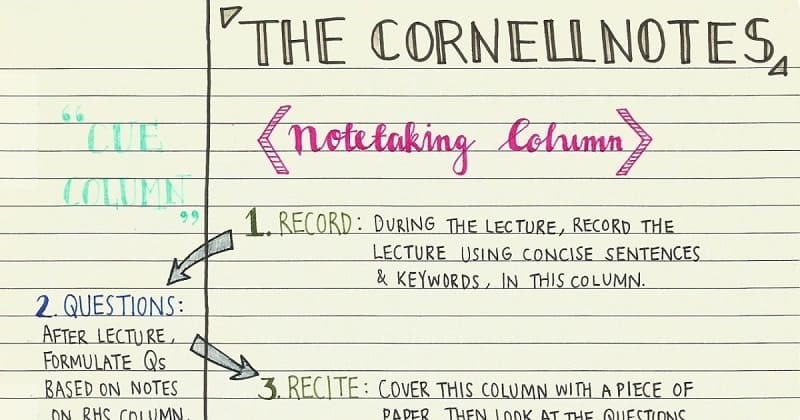 THE CORNELL NOTES
“CUE
COLUMN”
Notetaking Column
1. RECORD: DURING THE LECTURE, RECORD THE
LECTURE USING CONCISE SENTENCES
& KEYWORDS, IN THIS COLUMN.
2. QUESTIONS:
AFTER LECTURE,
FORMULATE Qs
BASED ON NOTES
ON RHS COLUMN.
3. RECITE: COVER THIS COLUMN WITH A PIECE OF
PAPER. THEN LOOK AT THE QUESTIONS